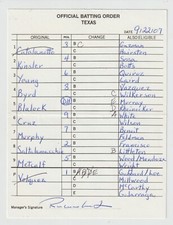 OFFICIAL BATTING ORDER
TEXAS
DATE 9/22/07
ORIGINAL POS. CHANGE ALSO ELIGIBLE
1 Catalanotto 3 B C Guzman
Hairston
2 Kinsler 4 Sosa
Botts
3 Young 6 Quiroz
Gaird
4 Byrd 8 Vazquez
C Wilkerson
5 Blalock DH D Murray
A Benoit
6 Cruz 9 A White
Wilson
7 Murphy 7 Benoit
Feldman
8 Saltalamacchia 2 Francisco
B Littleton
9 Metcalf 5 Wood / Mendoza
Wright
P 1 ABDE
Millwood
McCarthy
Galarraga
Manager's Signature